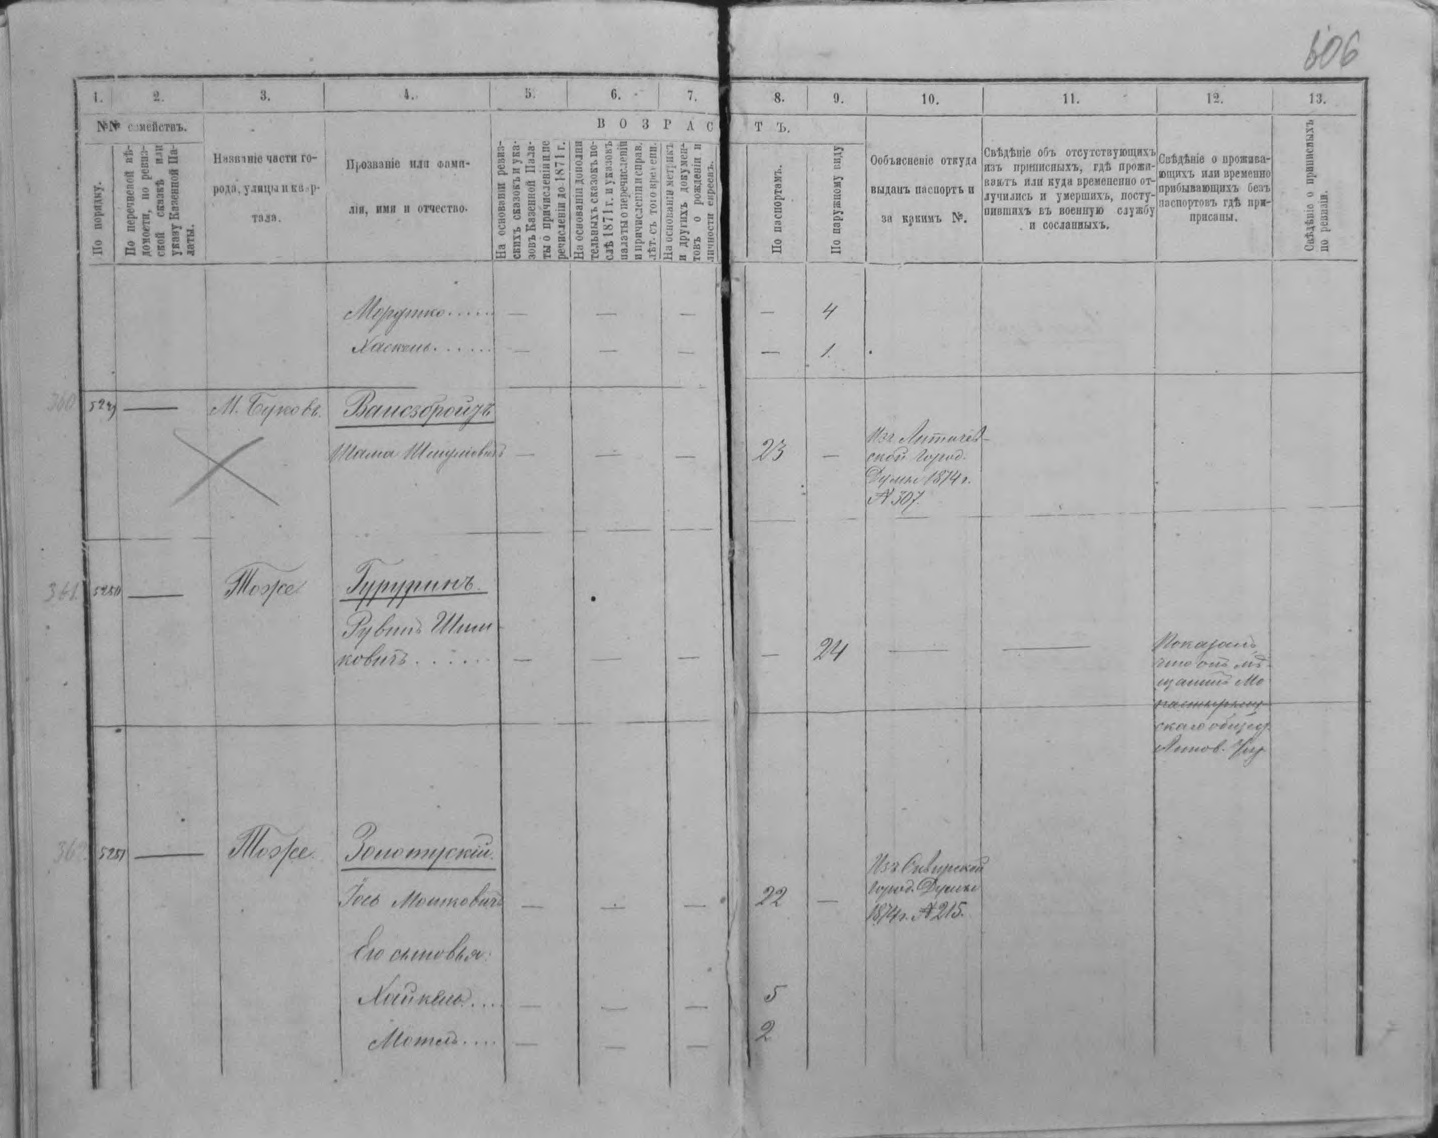 606
1. 2. 3. 4. 5. 6. 7. 8. 9. 10. 11. 12. 13.
№№ семействъ.
В О З Р А С Т Ъ.
По порядку.
По перечневой вѣ-
домости, по ревиз-
ской сказкѣ или
указу Казенной Па-
латы.
Названіе части го-
рода, улицы и квар-
тала.
Прозваніе или фами-
лія, имя и отчество.
На основаніи ревиз-
скихъ сказокъ и ука-
зовъ Казенной Пала-
ты о причисленіи и пе
речисленіи до 1871 г.
На основаніи дополни
тельныхъ сказокъ по-
слѣ 1871 г. и указовъ
палаты о перечисленіи
и причисленіи и справ.
лѣт. съ того времени.
На основаніи метрик.
и другихъ докумен-
товъ о рожденіи и
личности евреевъ.
По паспортамъ.
По наружному виду
Объясненіе откуда
выданъ паспортъ и
за какимъ №.
Свѣдѣніе объ отсутствующихъ
изъ приписныхъ, гдѣ прожи-
ваютъ или куда временно от-
лучились и умершихъ, посту-
пившихъ въ военную службу
и сосланныхъ.
Свѣдѣніе о прожива-
ющихъ или временно
прибывающихъ безъ
паспортовъ гдѣ при-
писаны.
Свѣдѣніе о приписныхъ
по ревизіи.
Мордтко..... — — — — 4
Хаскель...... — — — — 1.
360 5249 — М. Буковъ. Вайсбройтъ
Шама Шмулевичъ — — — 23 — Изъ Литинѣв-
ской город.
Думы 1874 г.
№ 307.
361 5250 — Тоже Гурринъ.
Рувинъ Шим-
ковичъ....... — — — — 24 — —
Показалъ,
что онъ мѣ-
щанинъ Мо
настырищ
скаго общес.
Липов. Уѣз
362 5251 — Тоже. Золотускій.
Іось Мошковичъ — — — 22 — Изъ Сквирской
город. Думы
1874 г. № 215.
Его сыновья:
Хайкель.... — — — 5
Мотель.... — — — 2